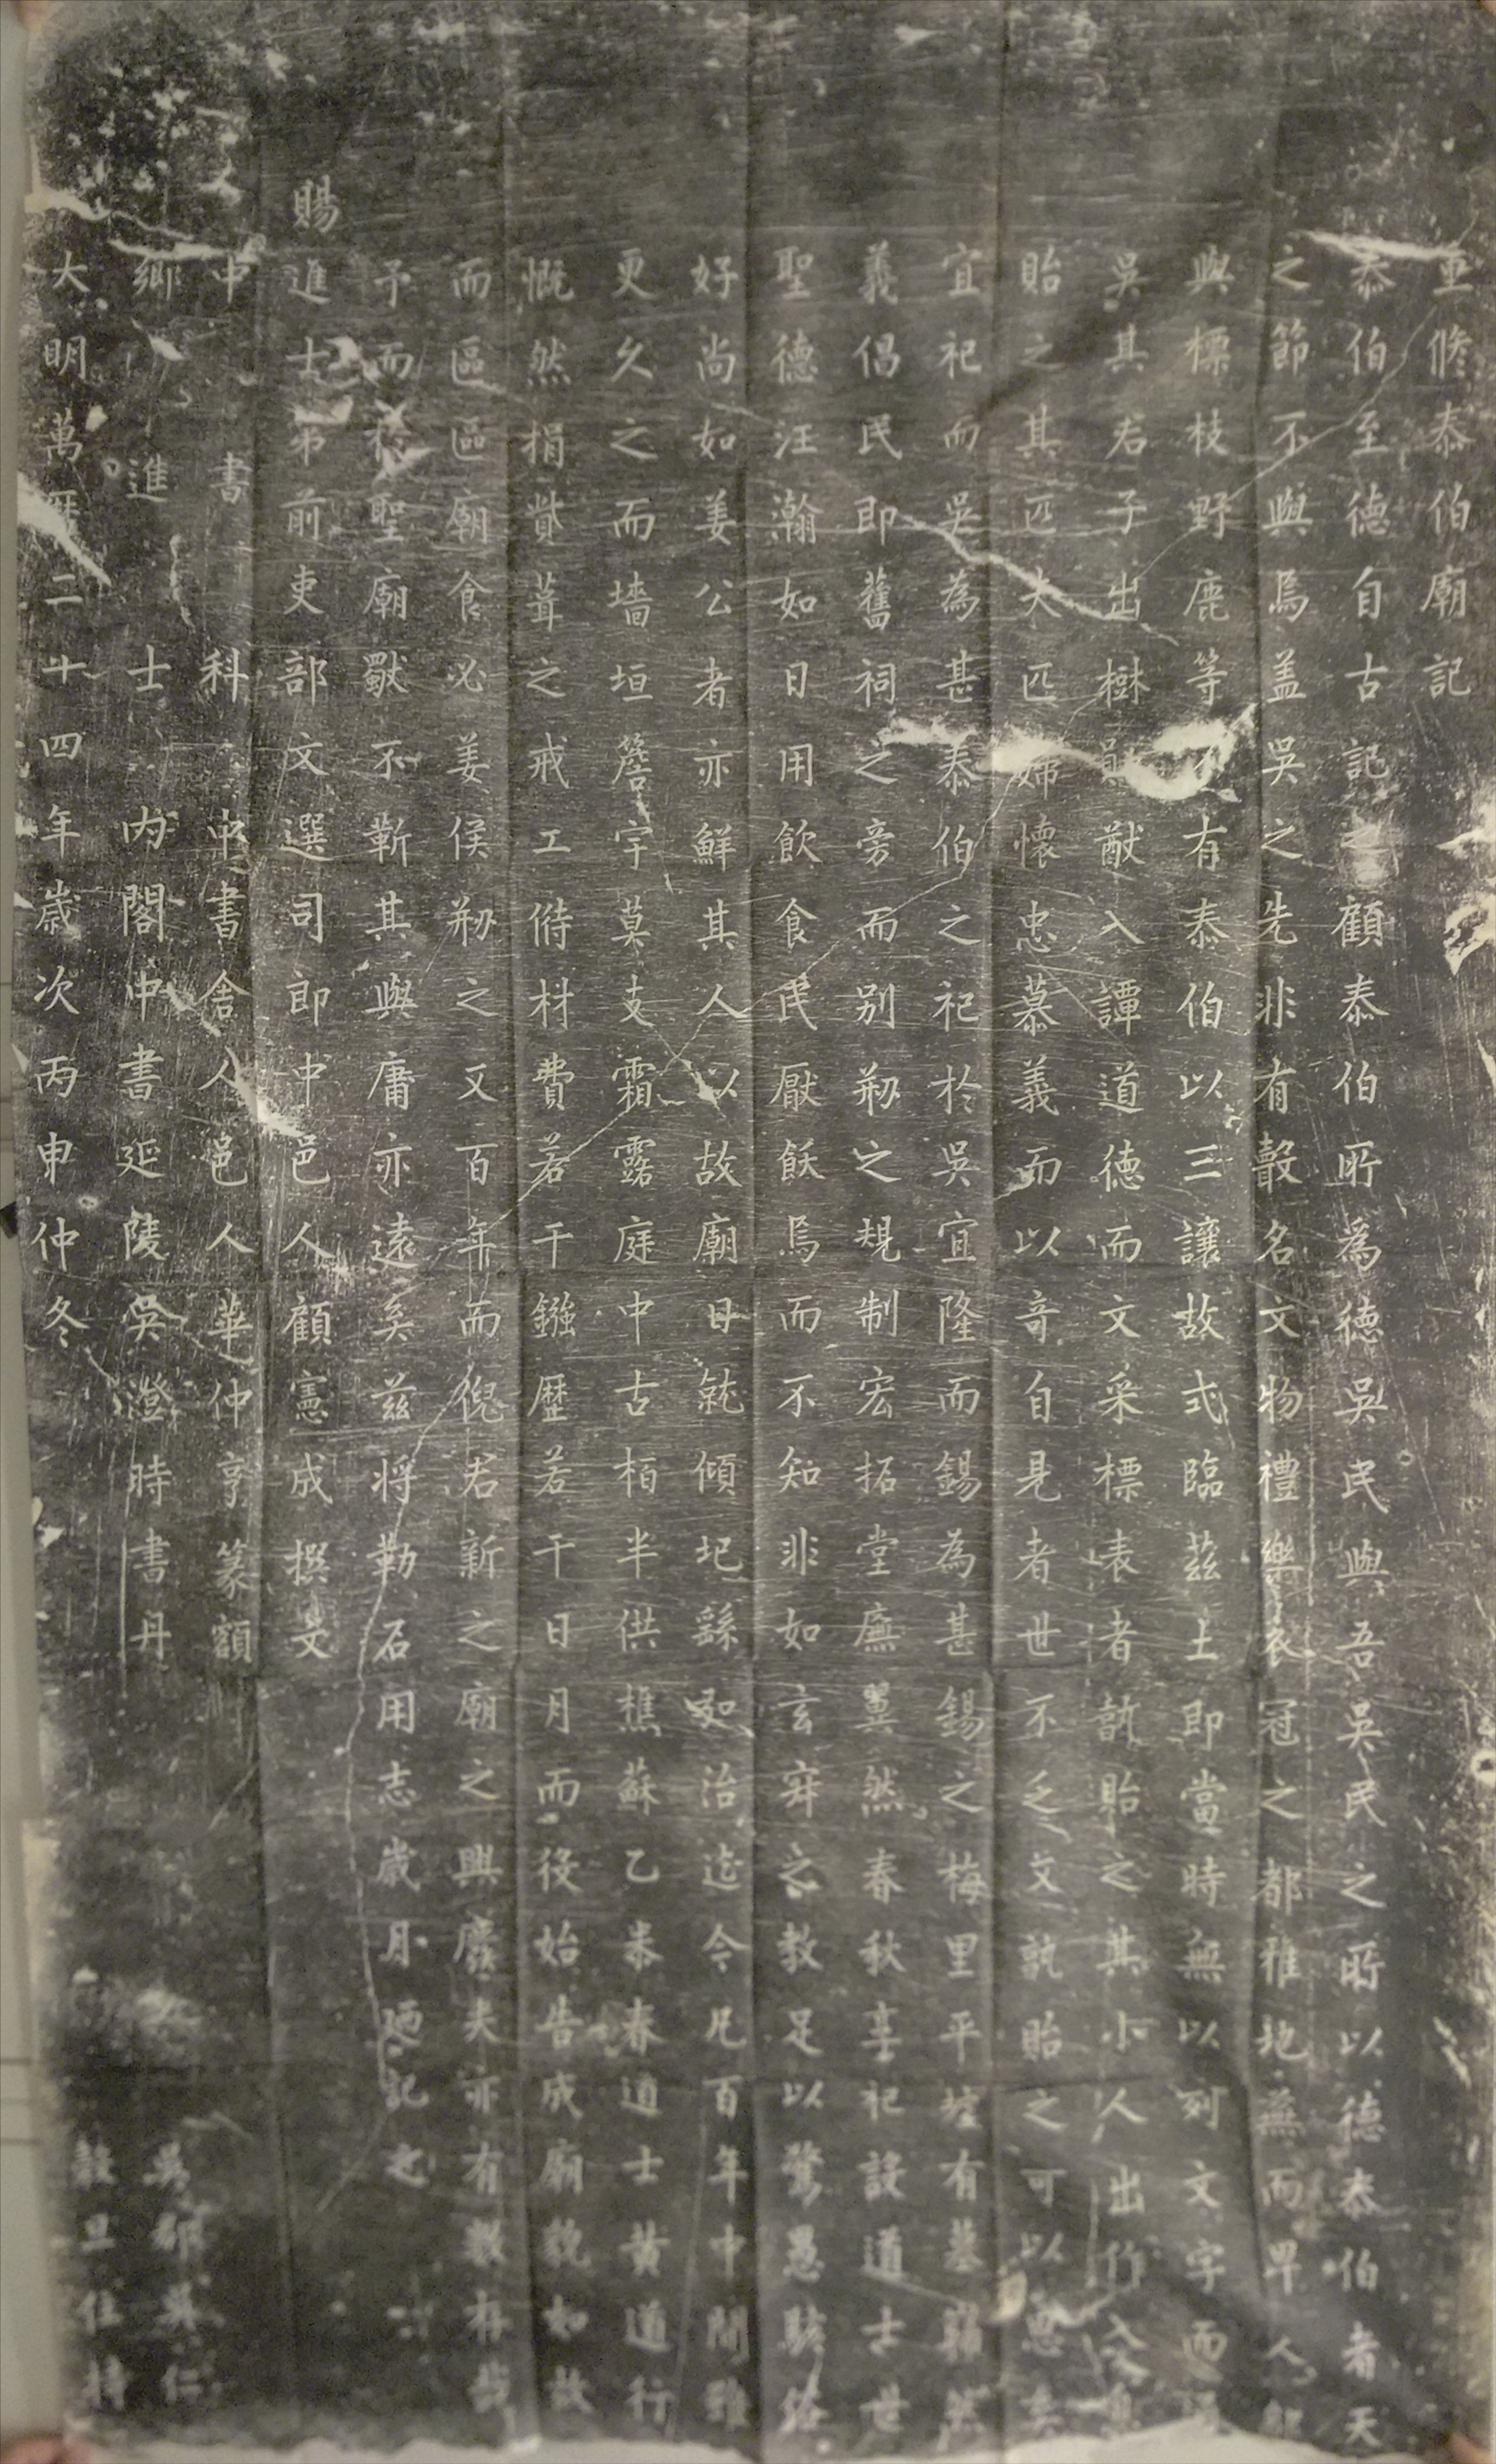 重脩泰伯廟記
泰伯至德自古記之顧泰伯所為德吳民與吾吳民之所以德泰伯者天
之節不與焉盖吳之先非有聲名文物禮樂衣冠之都雅地蕪而卑人
與標枝野鹿等有泰伯以三讓故式臨茲土即當時無以列文字而
吳其君子出樹勛猷入譚道德而文采標表者孰貽之其小人出作入息
貽之其匹夫匹婦懷忠慕義而以奇自見者世不乏文孰貽之可以思矣
宜祀而吳為甚泰伯之祀於吳宜隆而錫為甚錫之梅里平墟有墓巋然
義倡民即舊祠之旁而别剏之規制宏拓堂廡翼然春秋享祀設道士世
聖德汪瀚如日用飲食民厭飫焉而不知非如玄寂之教足以驚愚駭俗
好尚如姜公者亦鮮其人以故廟日就傾圯繇弘治迄今凡百年中間雖
更久之而墻垣簷宇莫支霜露庭中古栢半供樵蘇乙未春道士黄道行
慨然捐貲葺之戒工偫材費若干鏹歷若干日月而後始告成廟貌如故
而區區廟食必姜侯剏之又百年而倪君新之廟之興廢夫亦有數存哉
予而於聖廟獸不靳其與庸亦遠矣茲將勒石用志歲月迺記之
賜進士第前吏部文選司郎中邑人顧憲成撰文
中書科中書舍人邑人華仲亨篆額
鄉進士内閣中書延陵吳澄時書丹
大明萬歷二十四年歲次丙申仲冬